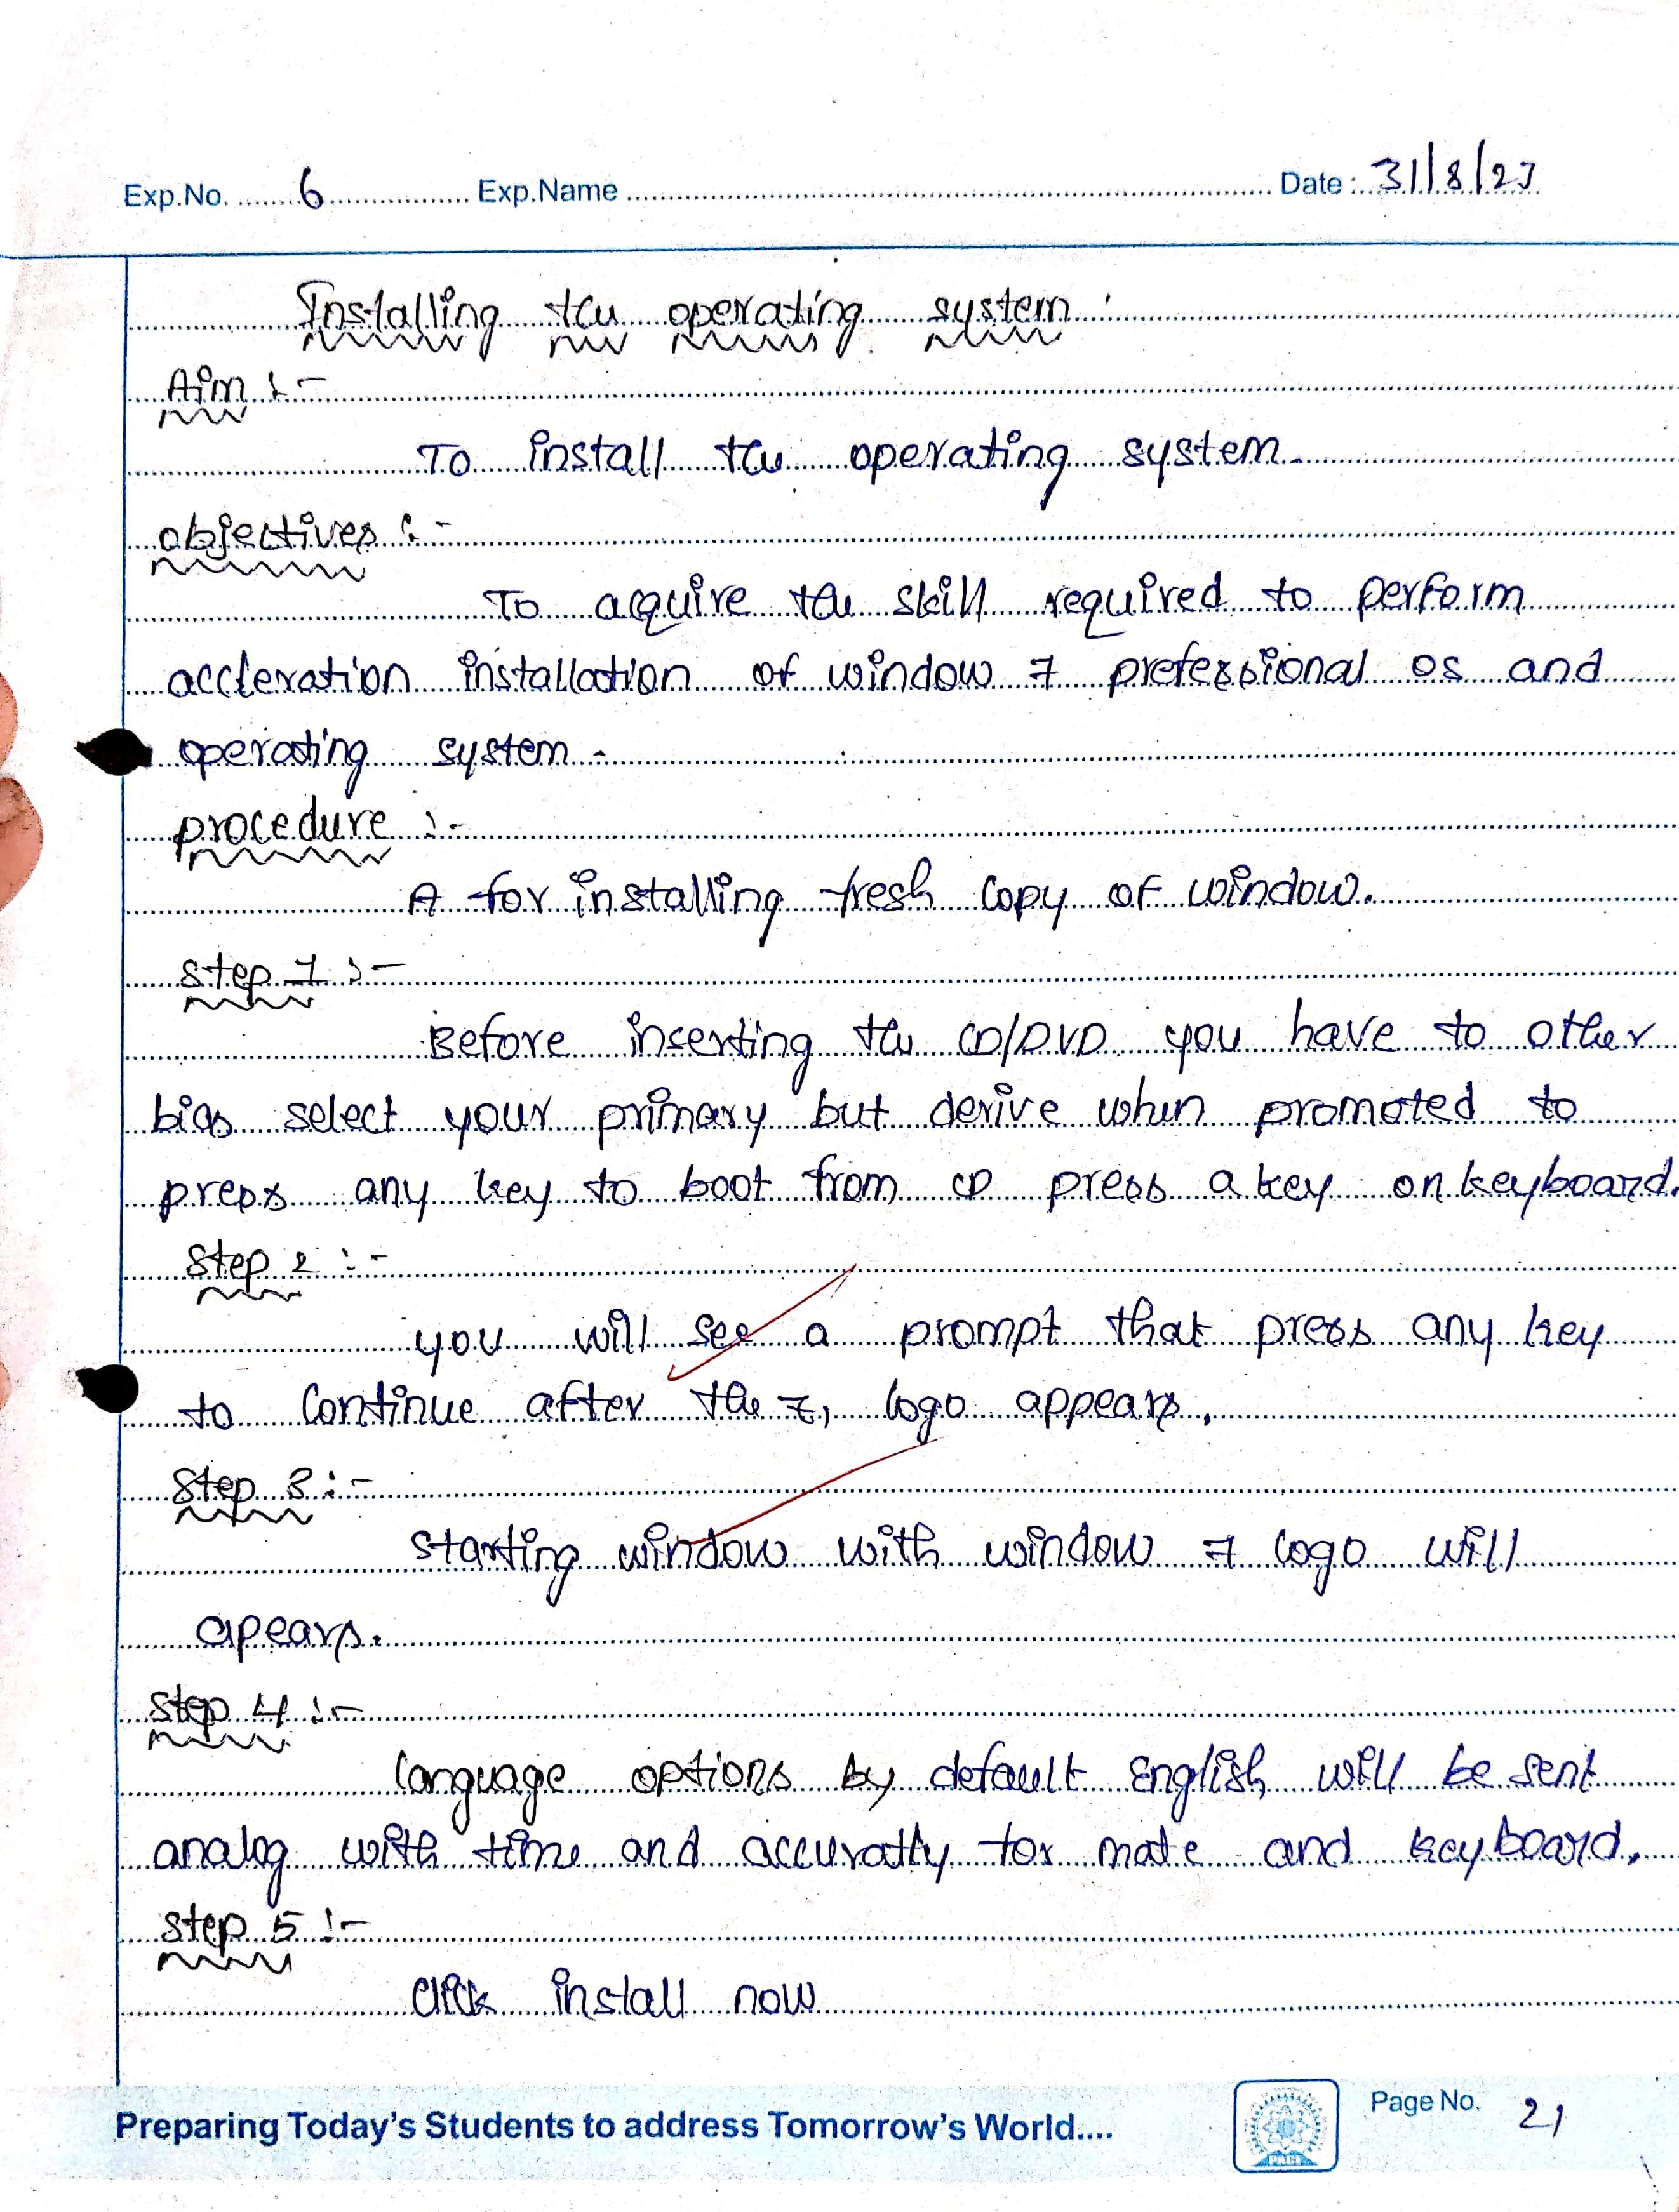 Exp.No. 6 Exp.Name Date : 31/8/23
Installing the operating system :
Aim :-
To install the operating system.
objectives :-
To acquire the skill required to perform
accleration installation of window 7 prefessional os and
operating system.
procedure :-
A for installing fresh copy of window.
step 1 :-
Before inserting the CD/DVD you have to other
bios select your primary but derive when promoted to
press any key to boot from CD press a key on keyboard.
Step 2 :-
you will see a prompt that press any key
to continue after the 7, logo appears.
Step 3 :-
starting window with window 7 logo will
apears.
step 4 :-
language options by default English will be sent
analog with time and accuratly for mate and keyboard.
step 5 :-
click install now
Preparing Today's Students to address Tomorrow's World....
PACE
Page No. 21